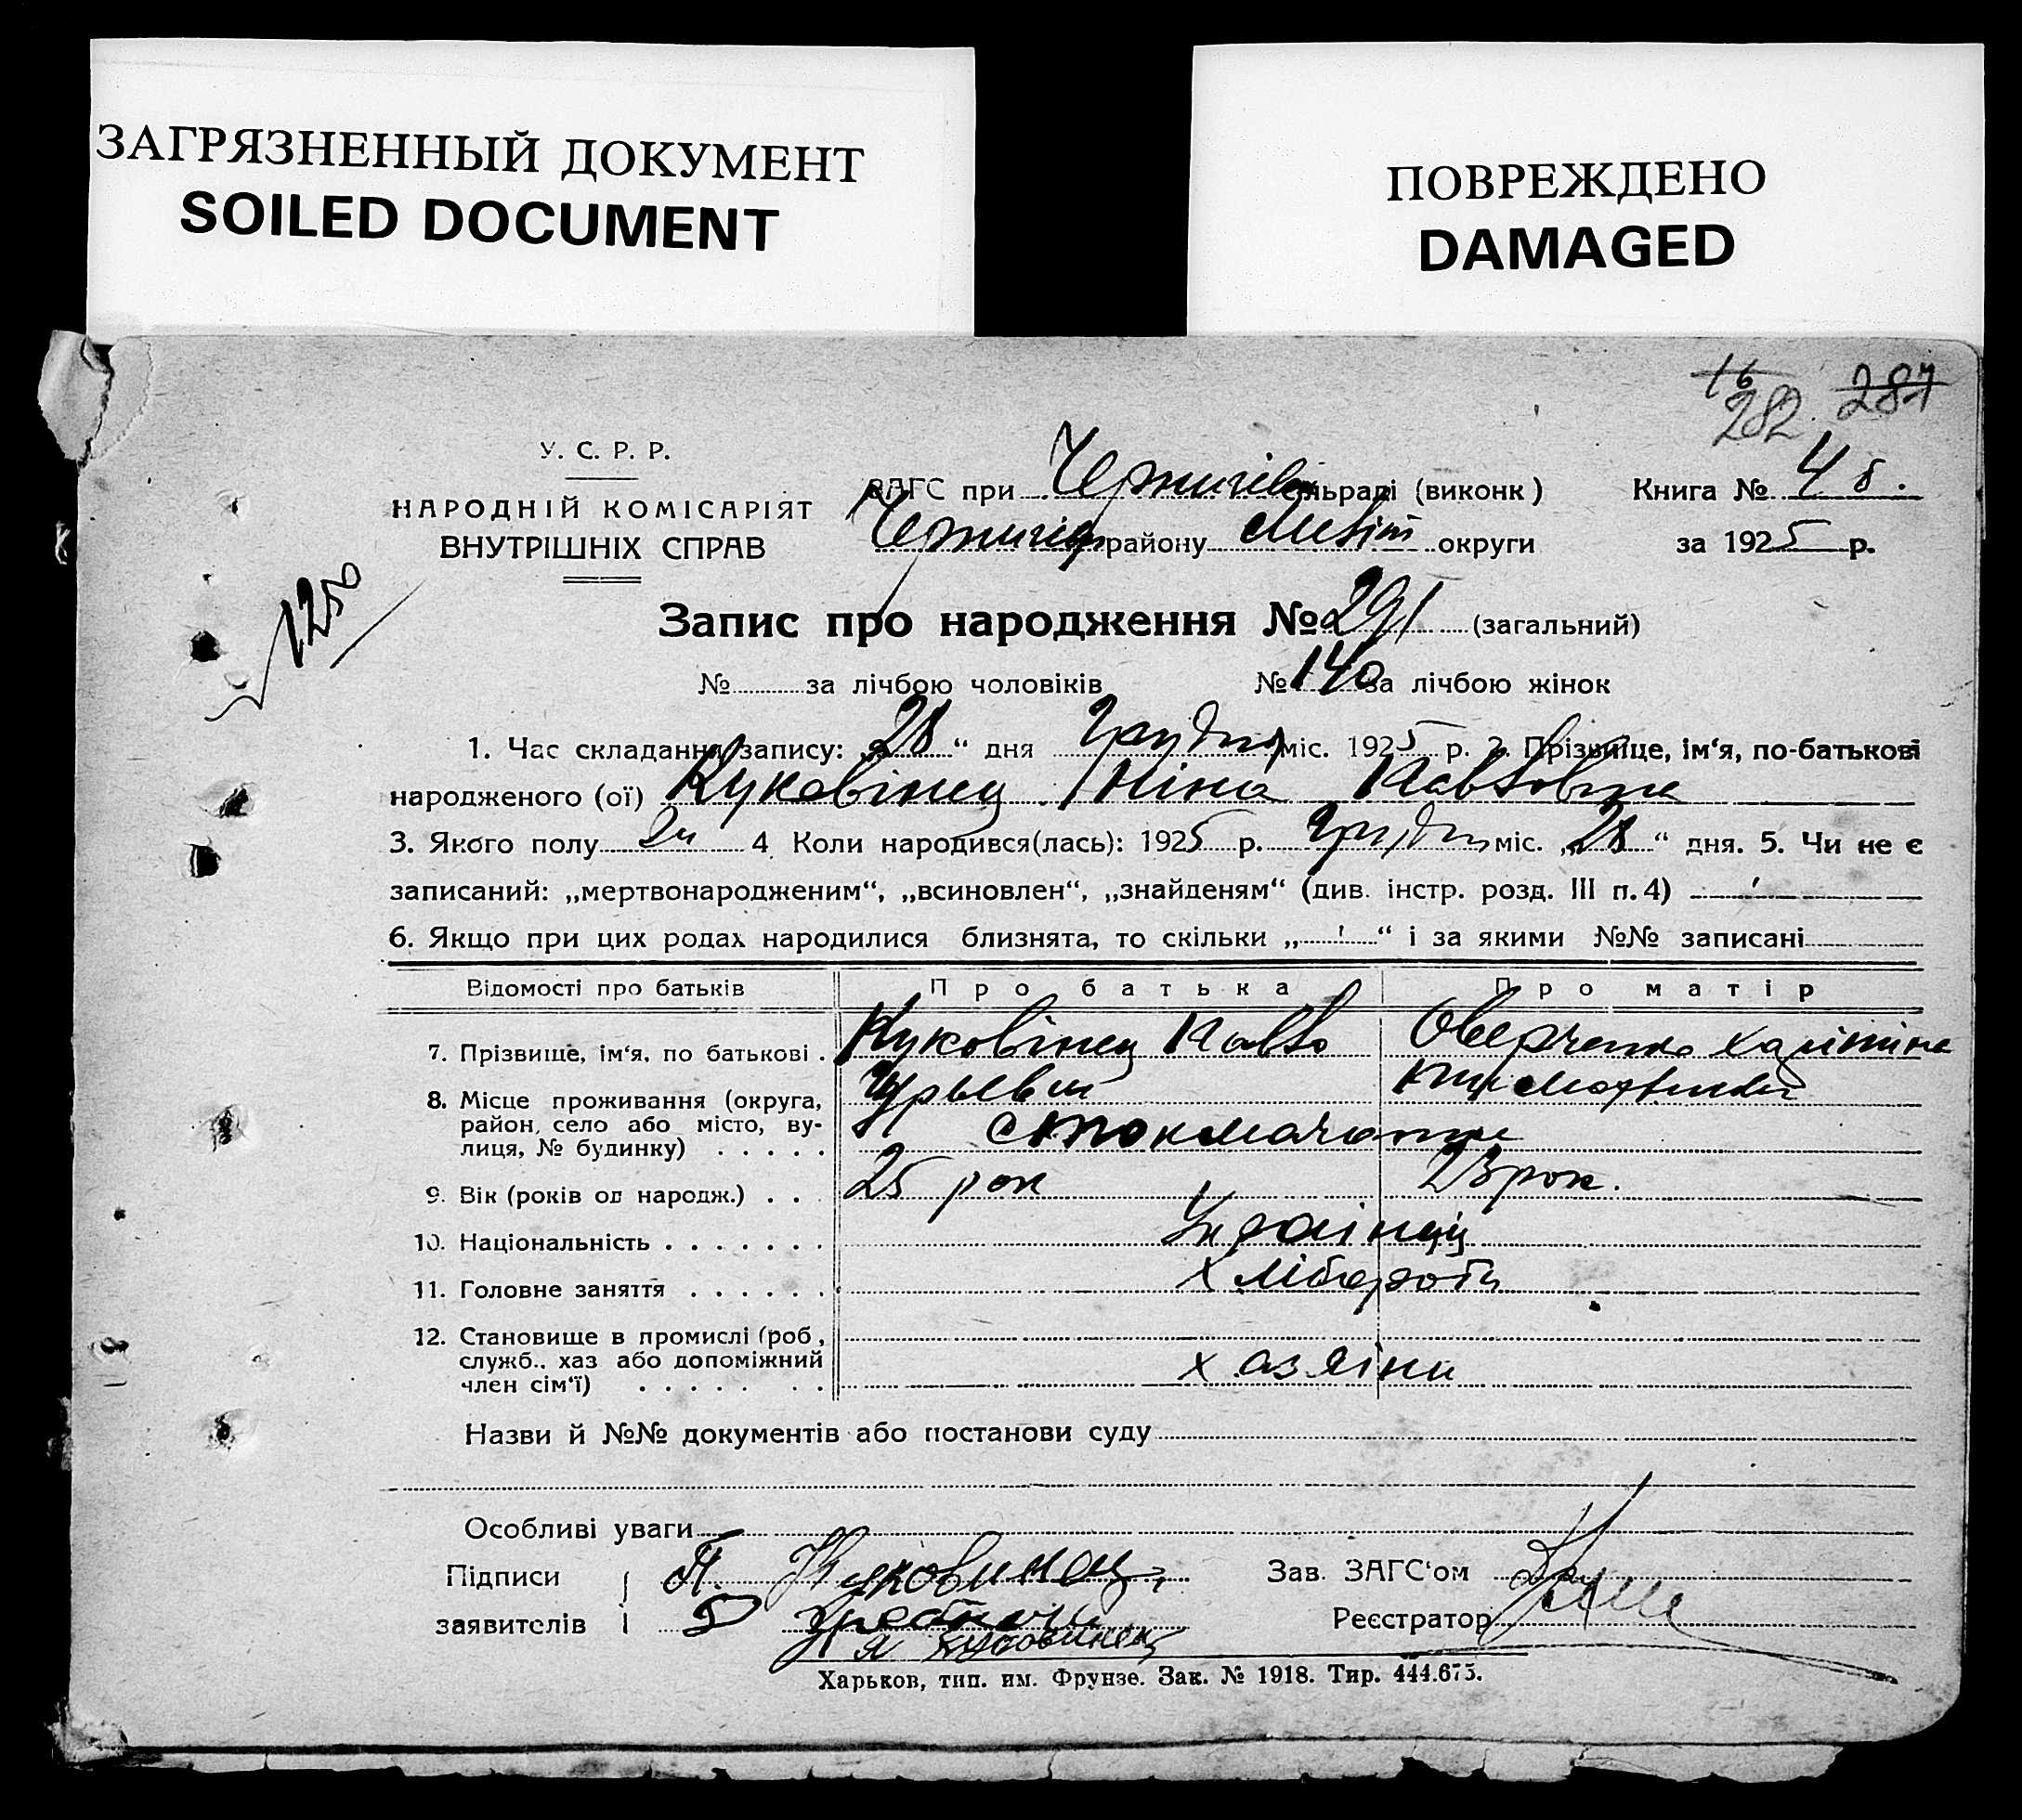 ЗАГРЯЗНЕННЫЙ ДОКУМЕНТ
SOILED DOCUMENT
ПОВРЕЖДЕНО
DAMAGED
16 282 287
У. С. Р. Р.
НАРОДНІЙ КОМІСАРІЯТ
ВНУТРІШНІХ СПРАВ
ЗАГС при Чернигів льраді (виконк) Книга № 4 б.
району округи за 1925 р.
1250
Запис про народження № 291 (загальний)
№ за лічбою чоловіків № 140 за лічбою жінок
1. Час складання запису: „28“ дня Грудня міс. 1925 р. 2. Прізвище, ім‘я, по-батькові
народженого (ої) Куковінец Ніна Павловна
3. Якого полу 4. Коли народився(лась): 1925 р. Грудня міс. „28“ дня. 5. Чи не є
записаний: „мертвонародженим“, „всиновлен“, „знайденям“ (див. інстр. розд. III п. 4)
6. Якщо при цих родах народилися близнята, то скільки „ “ і за якими №№ записані
Відомості про батьків Про батька Про матір
7. Прізвище, ім‘я, по батькові . Куковінец Павло
8. Місце проживання (округа,
район, село або місто, ву-
лиця, № будинку) . . . . .
9. Вік (років од народж.) . . . 25 рок 23 рок.
10. Національність . . . . . . . Українці
11. Головне заняття . . . . . . Хлібороби
12. Становище в промислі (роб.,
служб., хаз або допоміжний
член сім‘ї) . . . . . . . хазяіни
Назви й №№ документів або постанови суду
Особливі уваги
Підписи П. Куковинец, Зав. ЗАГС‘ом
заявителів Реєстратор
Харьков, тип. им. Фрунзе. Зак. № 1918. Тир. 444.675.